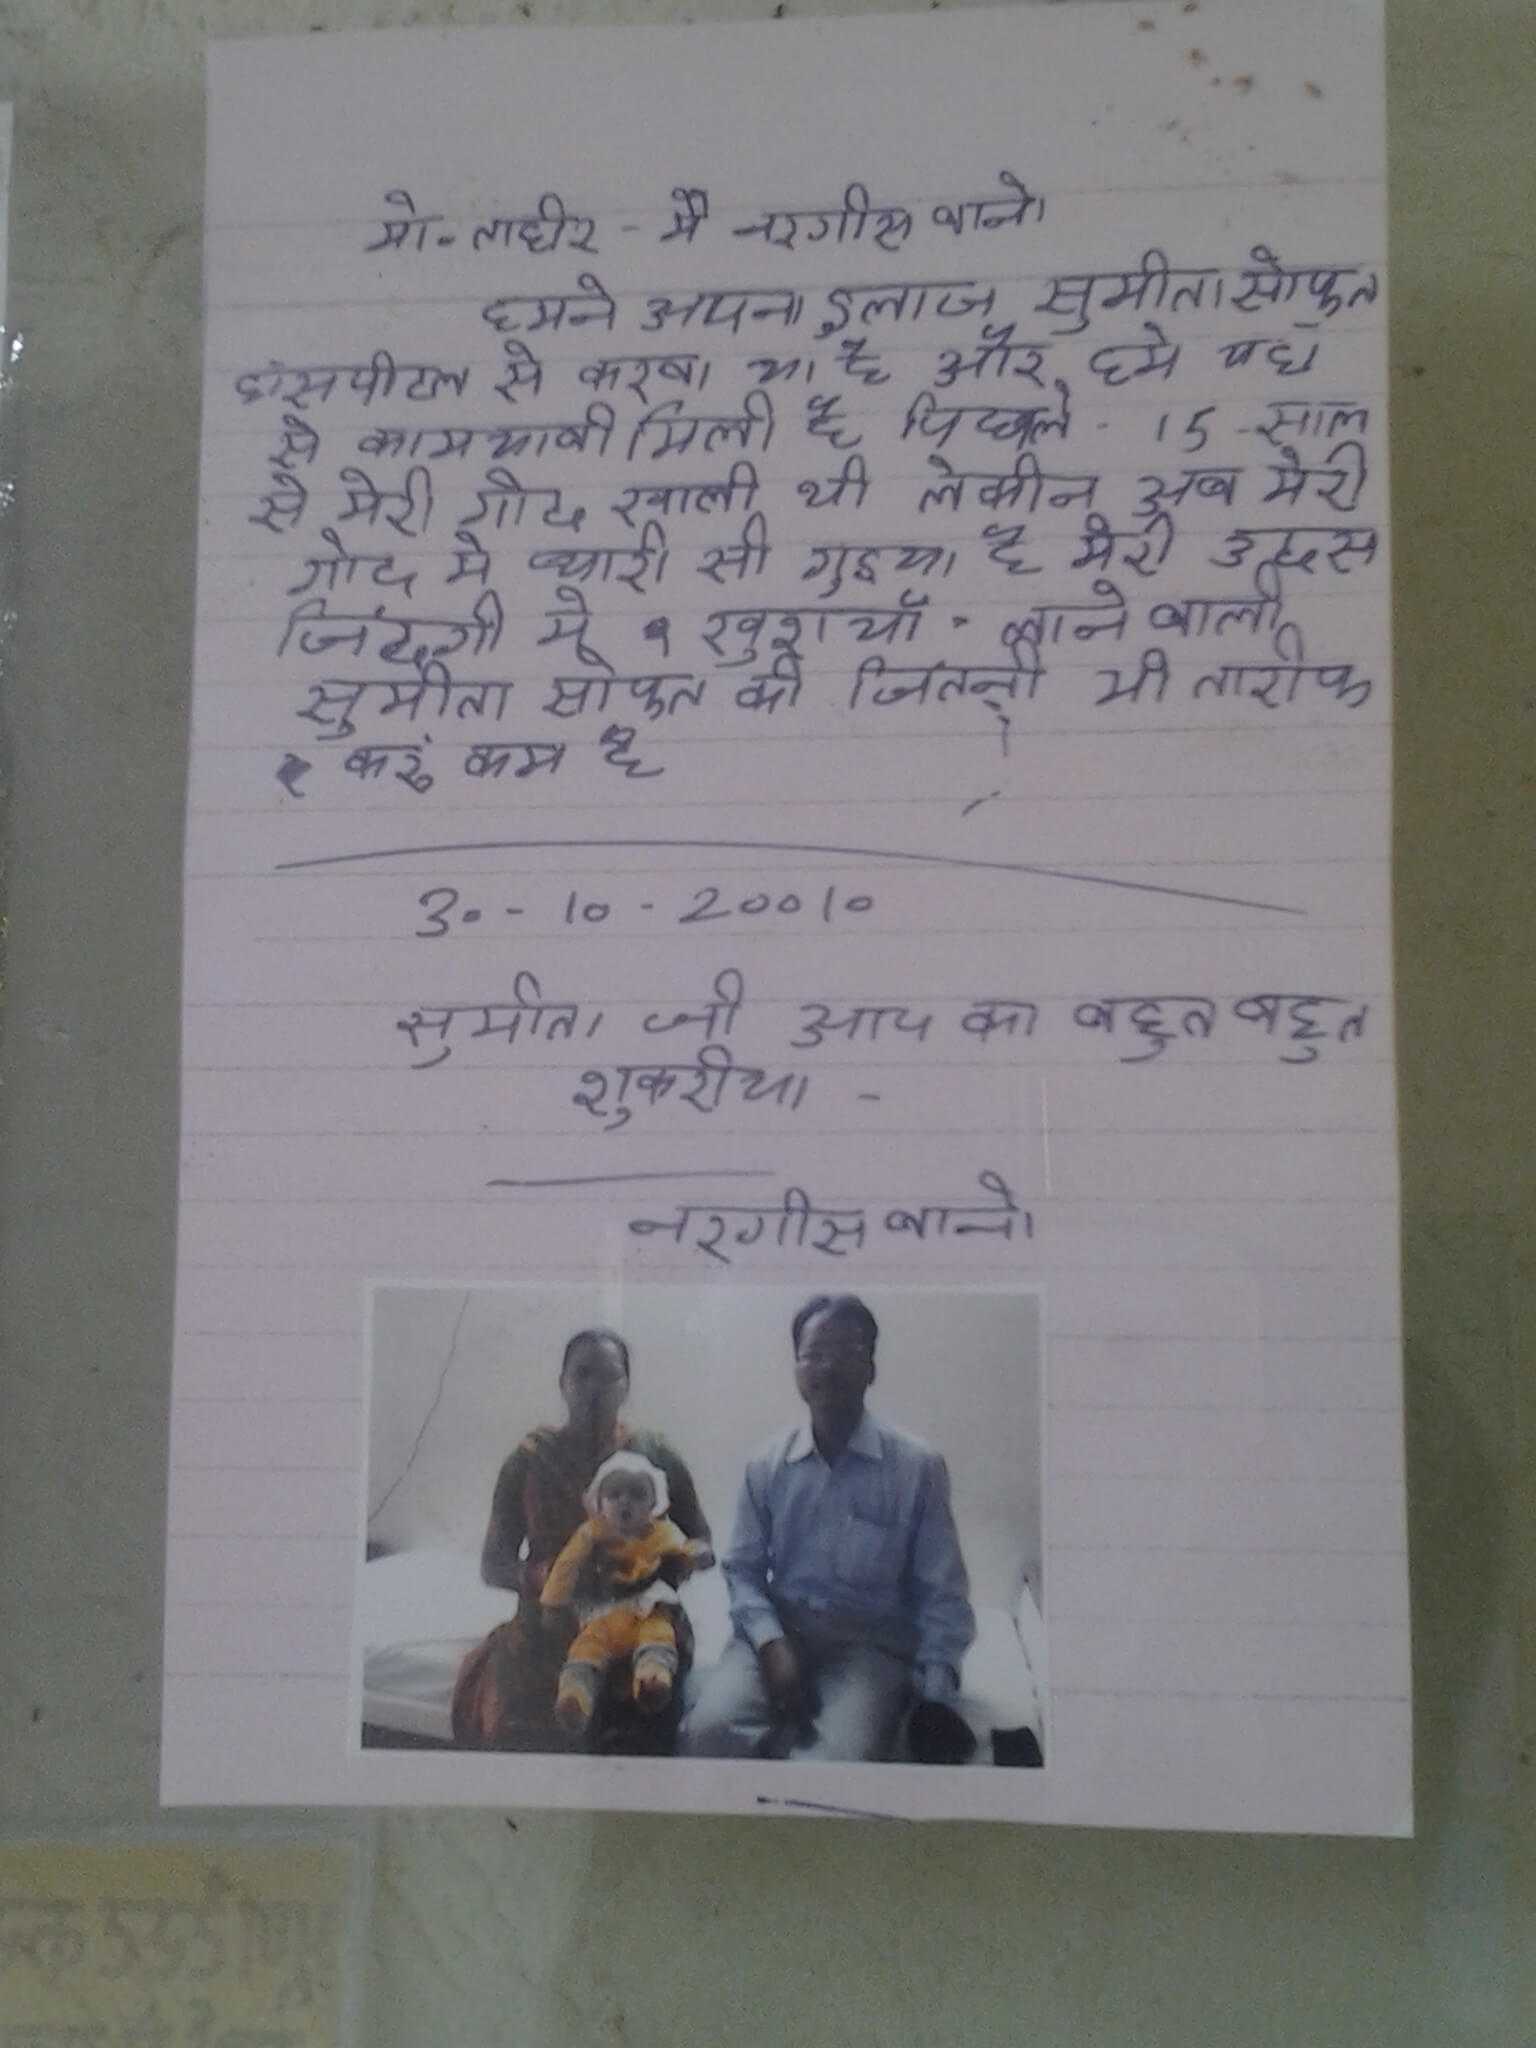 मो. ताहीर - मै नरगीस बानो
हमने अपना इलाज सुमीता सोफत
हासपीटल से करवा या है और हमे यहा
से कामयाबी मिली है पिछले - 15 - साल
से मेरी गोद खाली थी लेकीन अब मेरी
गोद मे प्यारी सी गुडया है मेरी उदास
जिंदगी मे खुशीयाँ - लाने वाली
सुमीता सोफत की जितनी भी तारीफ
करूं कम है
30 - 10 - 20010
सुमीता जी आप का बहुत बहुत
शुकरीया -
नरगीस बानो